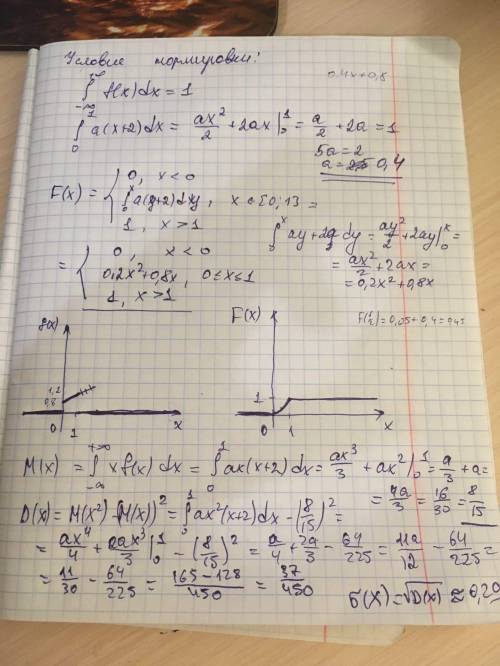 Условие нормировки:
0,4x+0,8
∫_{-∞}^{+∞} f(x)dx = 1
∫_0^1 a(x+2)dx = ax²/2 + 2ax |_0^1 = a/2 + 2a = 1
5a = 2
a = 0,4
F(x) = { 0, x < 0
∫_0^x a(y+2)dy, x ∈ [0;1] =
1, x > 1
∫_0^x ay+2a dy = ay²/2 + 2ay |_0^x =
= ax²/2 + 2ax =
= 0,2x² + 0,8x
= { 0, x < 0
0,2x² + 0,8x, 0 ≤ x ≤ 1
1, x > 1
F(1/2) = 0,05 + 0,4 = 0,45
f(x)
1,2
0,8
0 1 x
F(x)
1
0 1 x
M(x) = ∫_{-∞}^{+∞} x f(x) dx = ∫_0^1 ax(x+2) dx = ax³/3 + ax² |_0^1 = a/3 + a =
= 4a/3 = 16/30 = 8/15
D(x) = M(x²) - (M(x))² = ∫_0^1 ax²(x+2)dx - (8/15)² =
= ax⁴/4 + 2ax³/3 |_0^1 - (8/15)² = a/4 + 2a/3 - 64/225 = 11a/12 - 64/225 =
= 11/30 - 64/225 = (165-128)/450 = 37/450
б(X) = √D(x) ≈ 0,29